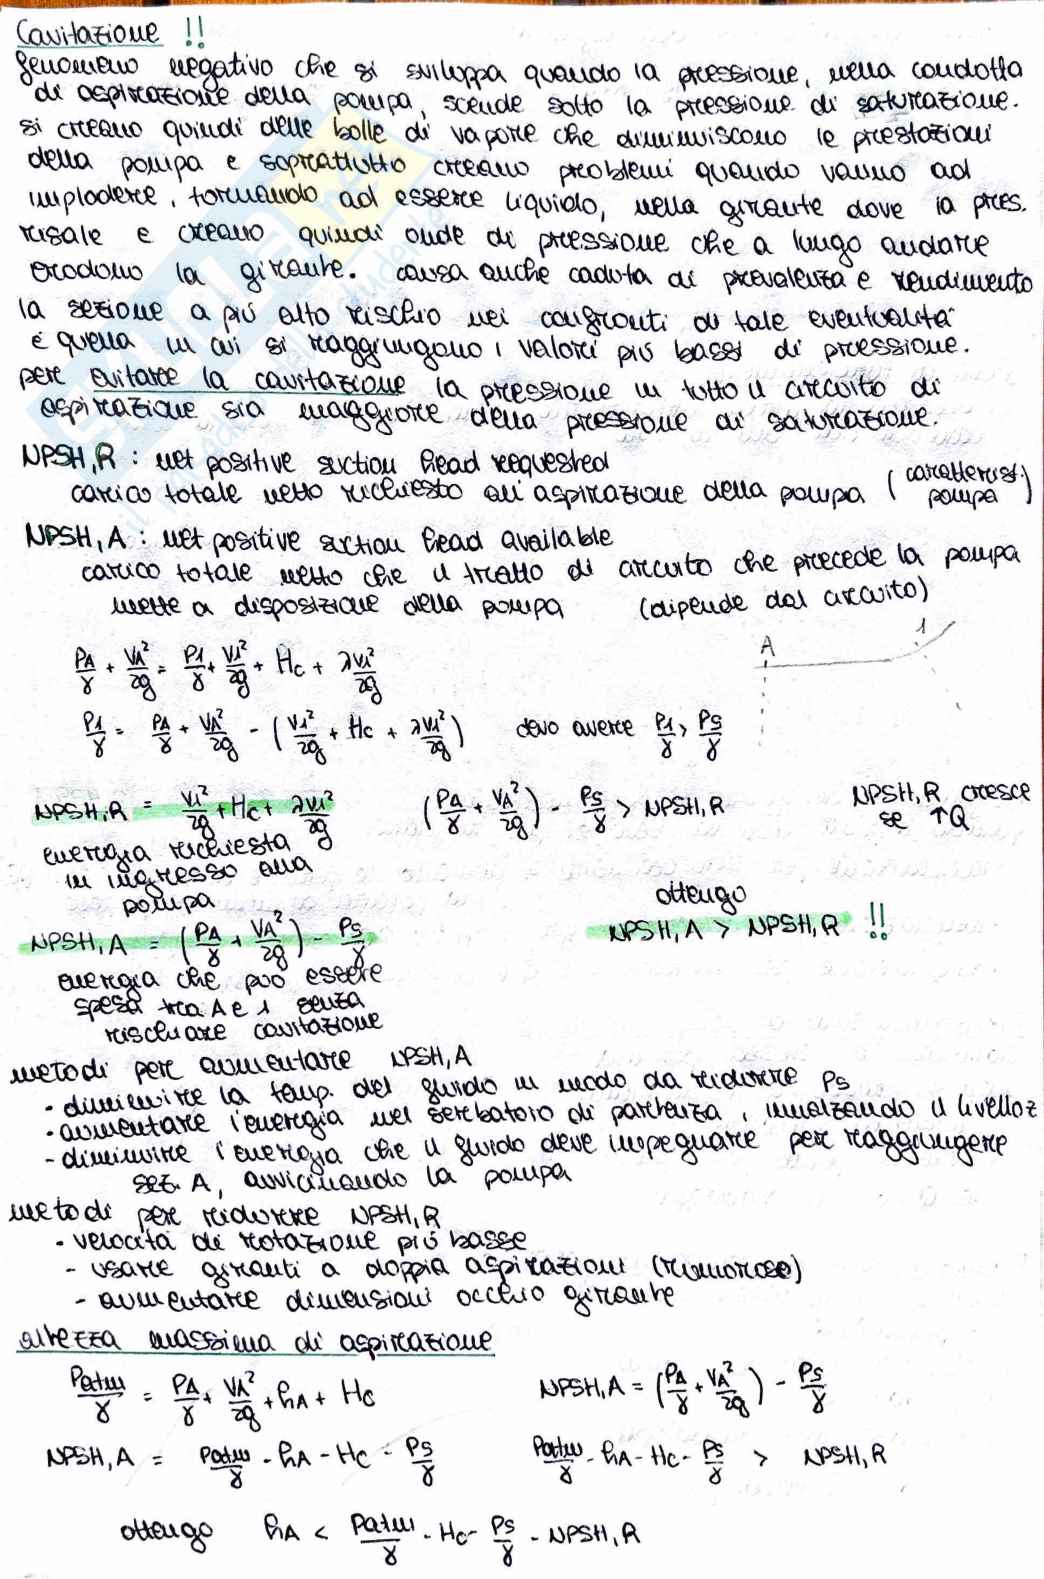 Cavitazione !!
fenomeno negativo che si sviluppa quando la pressione, nella condotta
di aspirazione della pompa, scende sotto la pressione di saturazione.
si creano quindi delle bolle di vapore che diminuiscono le prestazioni
della pompa e soprattutto creano problemi quando vanno ad
implodere, tornando ad essere liquido, nella girante dove la pres.
risale e creano quindi onde di pressione che a lungo andare
erodono la girante. causa anche caduta di prevalenza e rendimento
la sezione a più alto rischio nei confronti di tale eventualità
è quella in cui si raggiungono i valori più bassi di pressione.
per evitare la cavitazione la pressione in tutto il circuito di
aspirazione sia maggiore della pressione di saturazione.
NPSH,R : net positive suction head requested
carico totale netto richiesto all'aspirazione della pompa (caratterist. pompa)
NPSH,A : net positive suction head available
carico totale netto che il tratto di circuito che precede la pompa
mette a disposizione della pompa (dipende dal circuito)
A 1
PA/γ + VA²/2g = P1/γ + V1²/2g + Hc + λV1²/2g
P1/γ = PA/γ + VA²/2g - (V1²/2g + Hc + λV1²/2g) devo avere P1/γ > PS/γ
NPSH,R = V1²/2g + Hc + λV1²/2g (PA/γ + VA²/2g) - PS/γ > NPSH,R NPSH,R cresce
se ↑Q
energia richiesta
in ingresso alla
pompa
ottengo
NPSH,A > NPSH,R !!
NPSH,A = (PA/γ + VA²/2g) - PS/γ
energia che può essere
spesa tra A e 1 senza
rischiare cavitazione
metodi per aumentare NPSH,A
· diminuire la temp. del fluido in modo da ridurre PS
· aumentare l'energia nel serbatoio di partenza, innalzando il livello z
- diminuire l'energia che il fluido deve impegnare per raggiungere
sez. A, avvicinando la pompa
metodi per ridurre NPSH,R
· velocità di rotazione più basse
- usare giranti a doppia aspirazioni (rumorose)
- aumentare dimensioni occhio girante
altezza massima di aspirazione
Patm/γ = PA/γ + VA²/2g + hA + Hc NPSH,A = (PA/γ + VA²/2g) - PS/γ
NPSH,A = Patm/γ - hA - Hc - PS/γ Patm/γ - hA - Hc - PS/γ > NPSH,R
ottengo hA < Patm/γ - Hc - PS/γ - NPSH,R